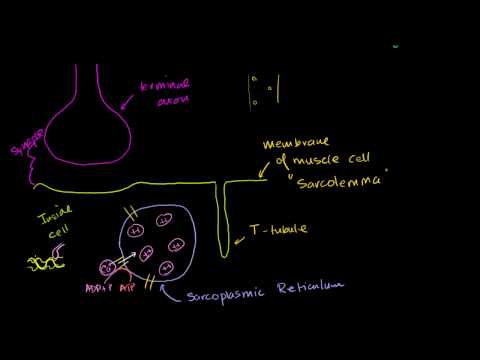 terminal
axon
synapse
membrane
of muscle cell
"Sarcolemma"
Inside
cell
T-tubule
ADP+P ATP
Sarcoplasmic Reticulum